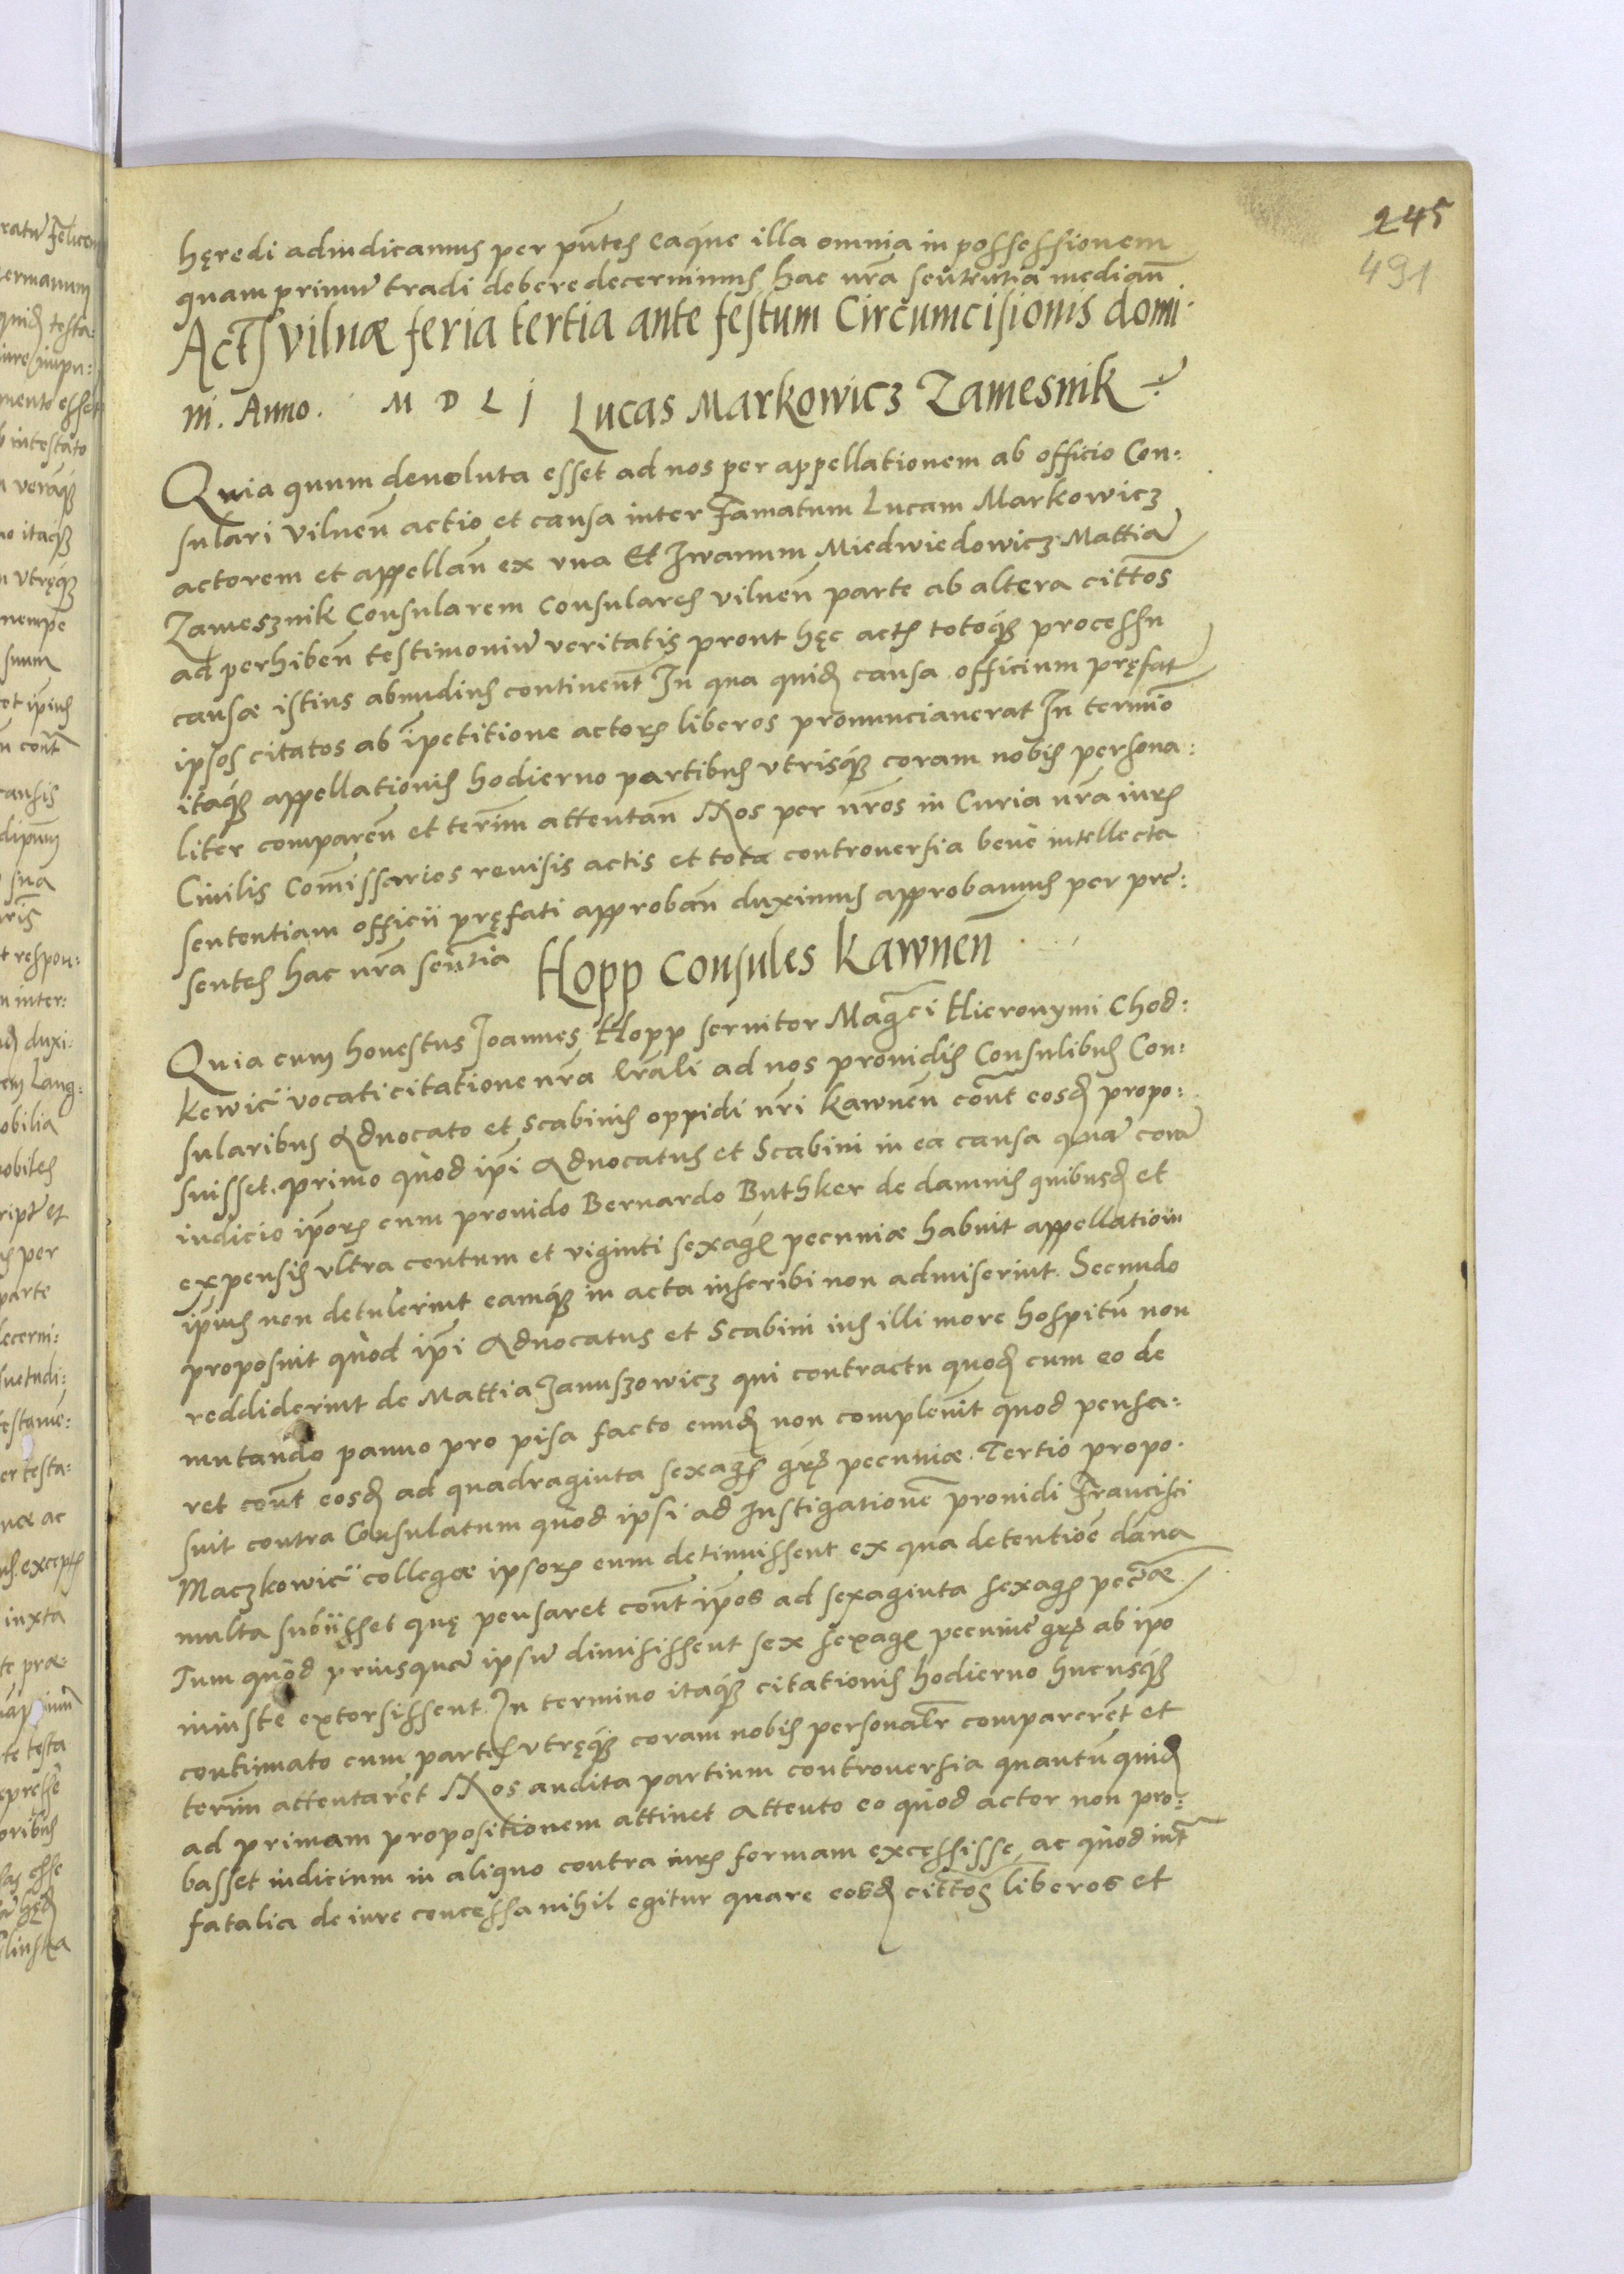 245
491
hęredi adiudicamus per pñtes eaq́ue illa omnia in possessionem
quam primũ tradi debere decernimus hac nrã sententia mediañ
Acts vilnæ feria tertia ante festum Circumcisionis domi:
ni. Anno. M D L J Lucas Markowicz Zamesnik
Quia quum deuoluta esset ad nos per appellationem ab officio Con:
sulari vilneñ actio et causa inter Famatum Lucam Markowicz
actorem et appellañ ex vna Et Iwanum Miedwiedowicz Mattiã
Zamesznik Consularem Consulares vilneñ parte ab altera cittõs
ad perhibeñ testimoniũ veritatis prout hęc acts totoq́ꝫ processu
causæ istius abundius continent̃ In qua quiđ causa officium pręfat
ipsos citatos ab ĩpetitione actors liberos pronunciauerat In termĩo
itaq́ꝫ appellationis hodierno partibus vtrisq́ꝫ coram nobis persona:
liter compareñ et terĩm attentañ Nos per nrõs in Curia nrã iurs
Ciuilis Com̃issarios reuisis actis et tota controuersia bene intellecta
sententiam officii pręfati approbañ duximus approbamus per pre:
sentes hac nrã señtia Hopp Consules Kawneñ
Quia cum honestus Joannes Hopp seruitor Mag̃ci Hieronymi Chod:
kewic̃ vocati citatione nrã lrãli ad nos prouidis Consulibus Con:
sularibus Aduocato et Scabinis oppidi nrĩ Kawneñ cont̃ eosđ propo:
suisset. primo quòd ipĩ Aduocatus et Scabini in ea causa quã corã
iudicio ipõrs cum prouido Bernardo Buthker de damnis quibusđ et
expensis vltra centum et viginti sexagꝭ pecuniæ habuit appellatioĩ
ipĩus non detulerint eamq́ꝫ in acta inscribi non admiserint. Secundo
proposuit quòd ipĩ Aduocatus et Scabini ius illi more hospitũ non
reddiderint de Mattia Januszowicz qui contractu quođ cum eo de
mutando panno pro pisa facto eunđ non compleuit quod pensa:
ret cont̃ eosđ ad quadraginta sexags grꝭ pecuniæ. Tertio propo.
suit contra Consulatum quòd ipsi ad Instigationẽ prouidi Francisci
Maczkowic̃ collegæ ipsors eum detinuissent ex qua detentiõe dãna
multa subiisset quę pensaret cont̃ ipõs ad sexaginta sexags pecũæ
Tum quòd priusquã ipsũ dimisissent sex sexagꝭ pecuniæ grꝭ ab ipõ
iniuste extorsissent. In termino itaq́ꝫ citationis hodierno hucusq́ꝫ
continuato cum partes vtręq́ꝫ coram nobis personalr̃ comparerẽt et
terĩm attentarẽt Nos audita partium controuersia quantũ quiđ
ad primam propositionem attinet Attento eo quòd actor non pro:
basset iudicium in aliquo contra iurs formam excessisse, ac quòd int̃
fatalia de iure concessa nihil egitur quare eosđ cittõs liberos et